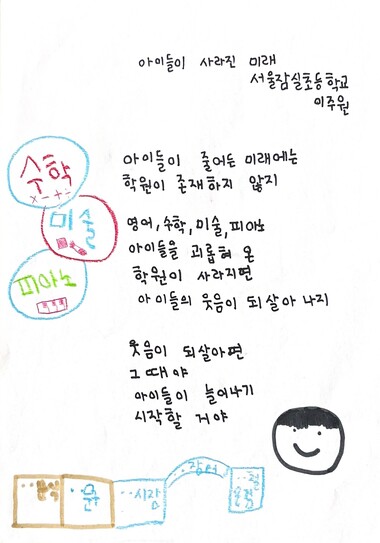 아이들이 사라진 미래
서울잠실초등학교
이주원
수학
× - + ÷
미술
피아노
아이들이 줄어든 미래에는
학원이 존재하지 않지
영어, 수학, 미술, 피아노
아이들을 괴롭혀 온
학원이 사라지면
아이들의 웃음이 되살아 나지
웃음이 되살아면
그때야
아이들이 늘어나기
시작할 거야
시장